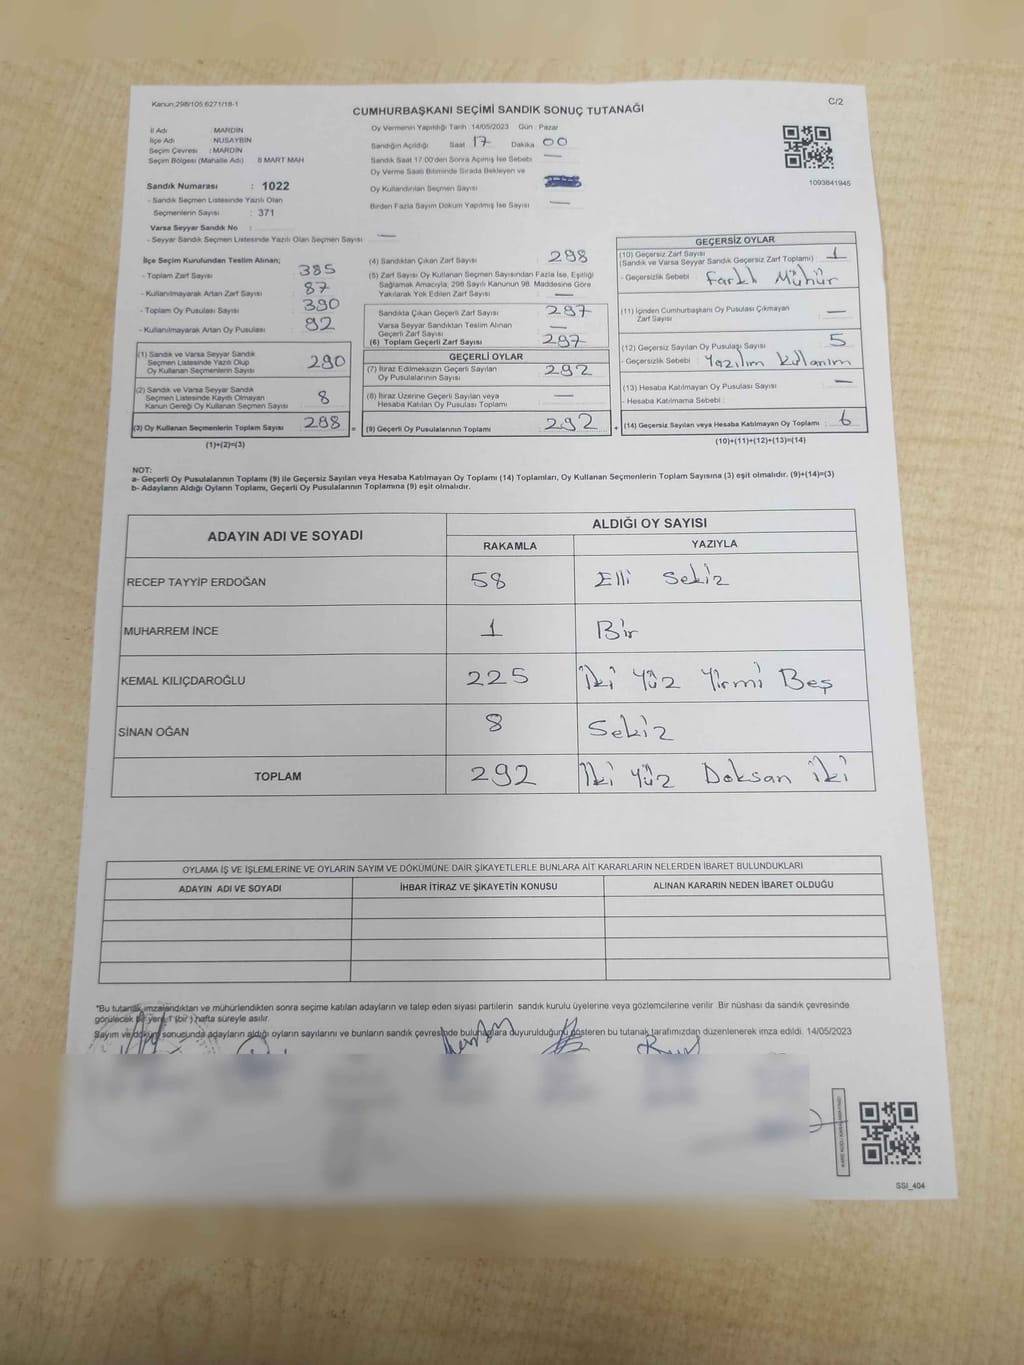 Kanun:298/105;6271/18-1
C/2
CUMHURBAŞKANI SEÇİMİ SANDIK SONUÇ TUTANAĞI
İl Adı : MARDİN
İlçe Adı : NUSAYBİN
Seçim Çevresi : MARDİN
Seçim Bölgesi (Mahalle Adı) 8 MART MAH
Sandık Numarası : 1022
- Sandık Seçmen Listesinde Yazılı Olan
Seçmenlerin Sayısı : 371
Varsa Seyyar Sandık No :
- Seyyar Sandık Seçmen Listesinde Yazılı Olan Seçmen Sayısı : —
Oy Vermenin Yapıldığı Tarih :14/05/2023 Gün : Pazar
Sandığın Açıldığı Saat 17 Dakika 00
Sandık Saat 17:00'den Sonra Açılmış İse Sebebi —
Oy Verme Saati Bitiminde Sırada Bekleyen ve
Oy Kullandırılan Seçmen Sayısı
Birden Fazla Sayım Döküm Yapılmış İse Sayısı —
1093841945
İlçe Seçim Kurulundan Teslim Alınan;
- Toplam Zarf Sayısı : 385
- Kullanılmayarak Artan Zarf Sayısı : 87
- Toplam Oy Pusulası Sayısı : 390
- Kullanılmayarak Artan Oy Pusulası : 92
(1) Sandık ve Varsa Seyyar Sandık
Seçmen Listesinde Yazılı Olup
Oy Kullanan Seçmenlerin Sayısı : 290
(2) Sandık ve Varsa Seyyar Sandık
Seçmen Listesinde Kayıtlı Olmayan
Kanun Gereği Oy Kullanan Seçmen Sayısı : 8
(3) Oy Kullanan Seçmenlerin Toplam Sayısı : 298
(1)+(2)=(3)
(4) Sandıktan Çıkan Zarf Sayısı : 298
(5) Zarf Sayısı Oy Kullanan Seçmen Sayısından Fazla İse, Eşitliği
Sağlamak Amacıyla, 298 Sayılı Kanunun 98. Maddesine Göre
Yakılarak Yok Edilen Zarf Sayısı : —
Sandıkta Çıkan Geçerli Zarf Sayısı : 297
Varsa Seyyar Sandıktan Teslim Alınan
Geçerli Zarf Sayısı : —
(6) Toplam Geçerli Zarf Sayısı : 297
GEÇERLİ OYLAR
(7) İtiraz Edilmeksizin Geçerli Sayılan
Oy Pusulalarının Sayısı : 292
(8) İtiraz Üzerine Geçerli Sayılan veya
Hesaba Katılan Oy Pusulası Toplamı : —
= (9) Geçerli Oy Pusulalarının Toplamı : 292
GEÇERSİZ OYLAR
(10) Geçersiz Zarf Sayısı
(Sandık ve Varsa Seyyar Sandık Geçersiz Zarf Toplamı) : 1
- Geçersizlik Sebebi : Farklı Mühür
(11) İçinden Cumhurbaşkanı Oy Pusulası Çıkmayan
Zarf Sayısı : —
(12) Geçersiz Sayılan Oy Pusulası Sayısı : 5
- Geçersizlik Sebebi : Yazılım kullanım
(13) Hesaba Katılmayan Oy Pusulası Sayısı : —
- Hesaba Katılmama Sebebi :
+ (14) Geçersiz Sayılan veya Hesaba Katılmayan Oy Toplamı : 6
(10)+(11)+(12)+(13)=(14)
NOT:
a- Geçerli Oy Pusulalarının Toplamı (9) ile Geçersiz Sayılan veya Hesaba Katılmayan Oy Toplamı (14) Toplamları, Oy Kullanan Seçmenlerin Toplam Sayısına (3) eşit olmalıdır. (9)+(14)=(3)
b- Adayların Aldığı Oyların Toplamı, Geçerli Oy Pusulalarının Toplamına (9) eşit olmalıdır.
ADAYIN ADI VE SOYADI
ALDIĞI OY SAYISI
RAKAMLA YAZIYLA
RECEP TAYYİP ERDOĞAN 58 Elli Sekiz
MUHARREM İNCE 1 Bir
KEMAL KILIÇDAROĞLU 225 İki Yüz Yirmi Beş
SİNAN OĞAN 8 Sekiz
TOPLAM 292 İki Yüz Doksan İki
OYLAMA İŞ VE İŞLEMLERİNE VE OYLARIN SAYIM VE DÖKÜMÜNE DAİR ŞİKAYETLERLE BUNLARA AİT KARARLARIN NELERDEN İBARET BULUNDUKLARI
ADAYIN ADI VE SOYADI İHBAR İTİRAZ VE ŞİKAYETİN KONUSU ALINAN KARARIN NEDEN İBARET OLDUĞU
*Bu tutanak imzalandıktan ve mühürlendikten sonra seçime katılan adayların ve talep eden siyasi partilerin sandık kurulu üyelerine veya gözlemcilerine verilir. Bir nüshası da sandık çevresinde
görülecek bir yere 1 (bir) hafta süreyle asılır.
Sayım ve döküm sonucunda adayların aldığı oyların sayılarını ve bunların sandık çevresinde bulunanlara duyurulduğunu gösteren bu tutanak tarafımızdan düzenlenerek imza edildi. 14/05/2023
SSI_404